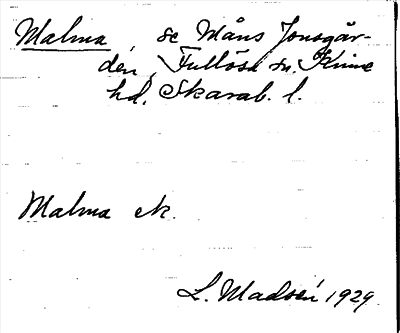 Malma se Måns Jonsgår-
den, Fullösa sn. Kinne
hd. Skarab. l.
Malma ek.
L. Madsén 1929